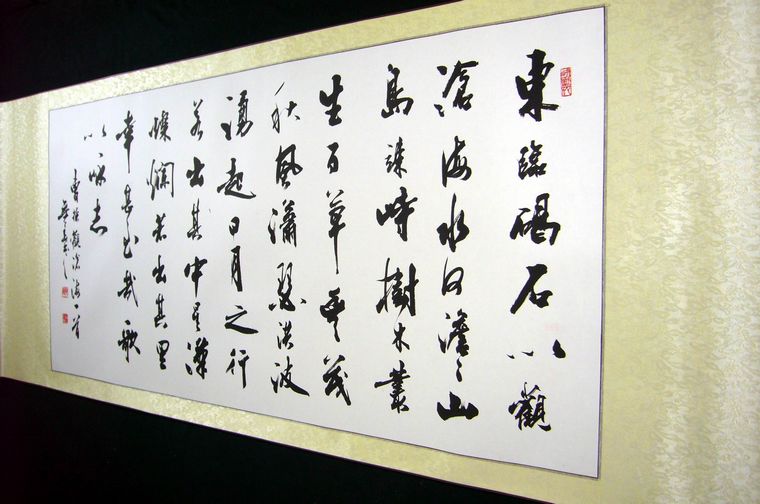 東臨碣石以觀
滄海水何澹々山
島竦峙樹木叢
生百草豐茂
秋風瀟瑟洪波
湧起日月之行
若出其中星漢
燦爛若出其里
幸甚至哉歌
以咏志
曹操觀滄海一首